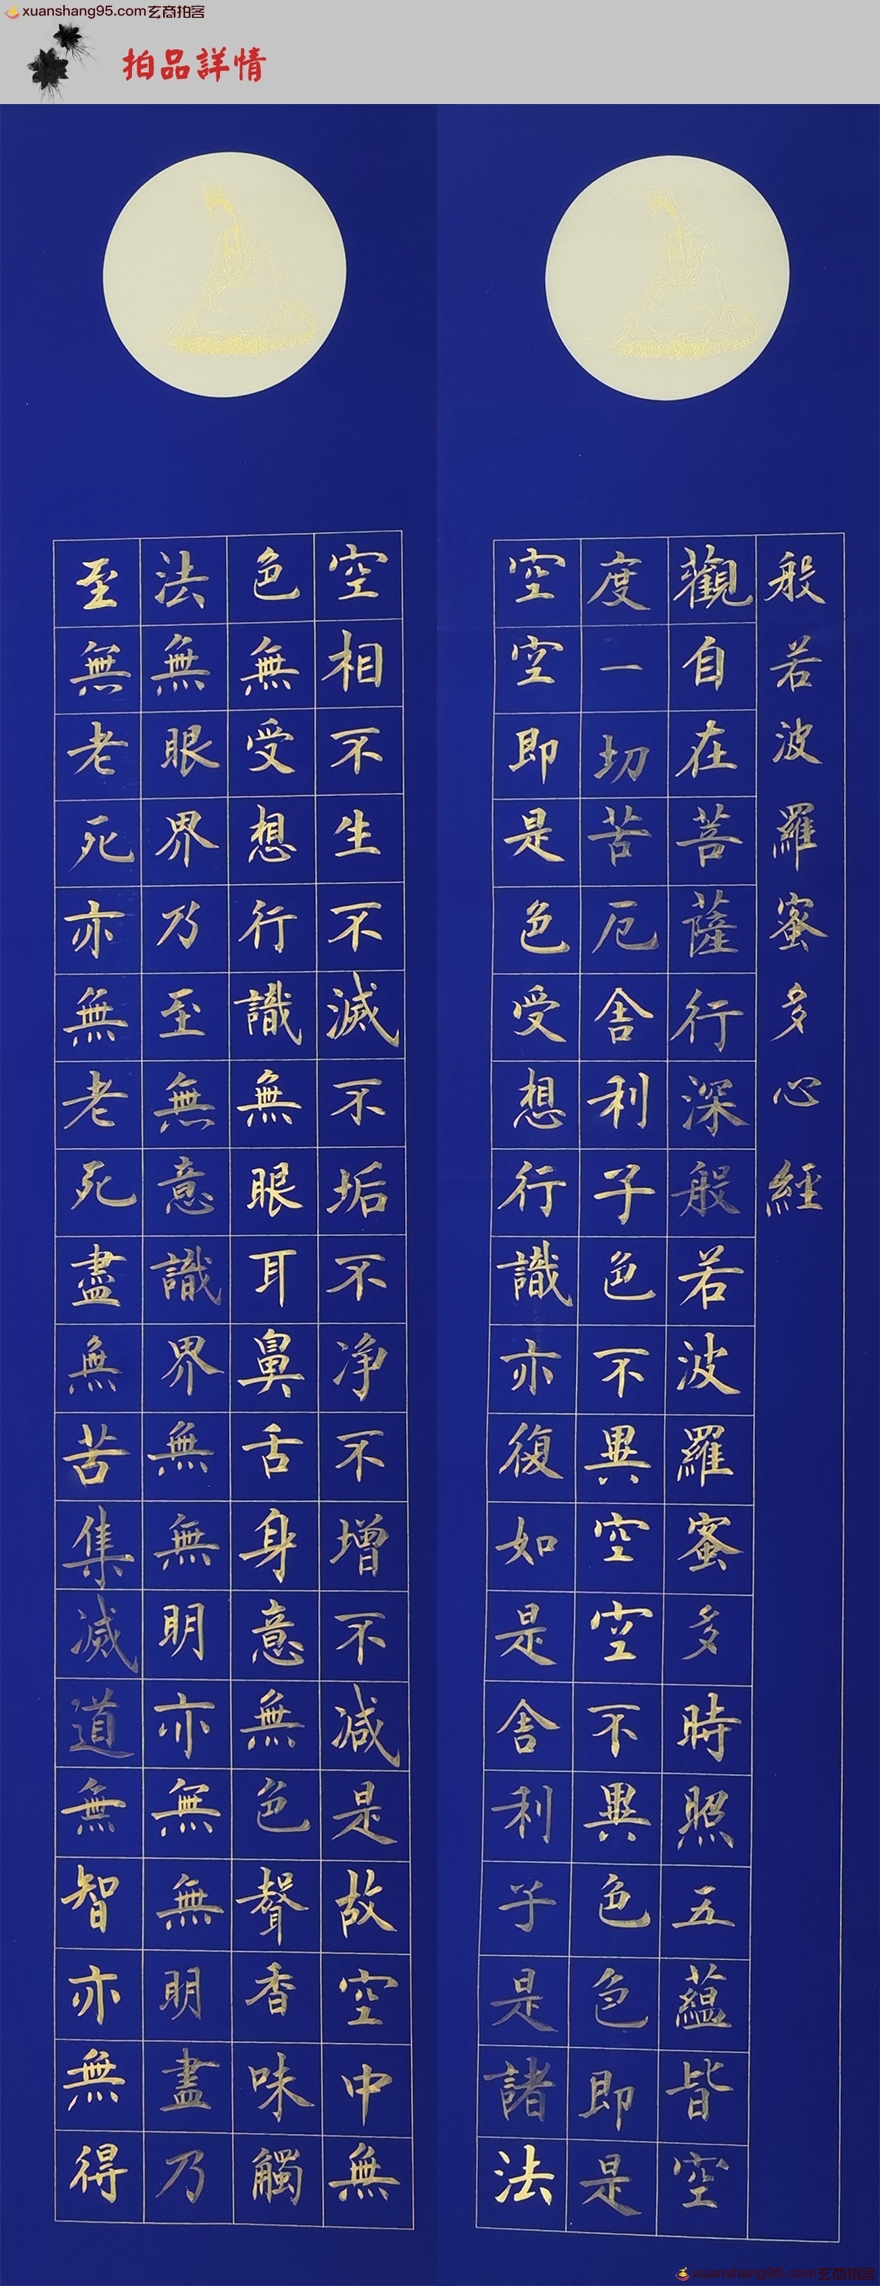 xuanshang95.com玄商拍客
拍品詳情
般若波羅蜜多心經
觀自在菩薩行深般若波羅蜜多時照五蘊皆空
度一切苦厄舍利子色不異空空不異色色即是
空空即是色受想行識亦復如是舍利子是諸法
空相不生不滅不垢不净不增不減是故空中無
色無受想行識無眼耳鼻舌身意無色聲香味觸
法無眼界乃至無意識界無無明亦無無明盡乃
至無老死亦無老死盡無苦集滅道無智亦無得
xuanshang95.com玄商拍客